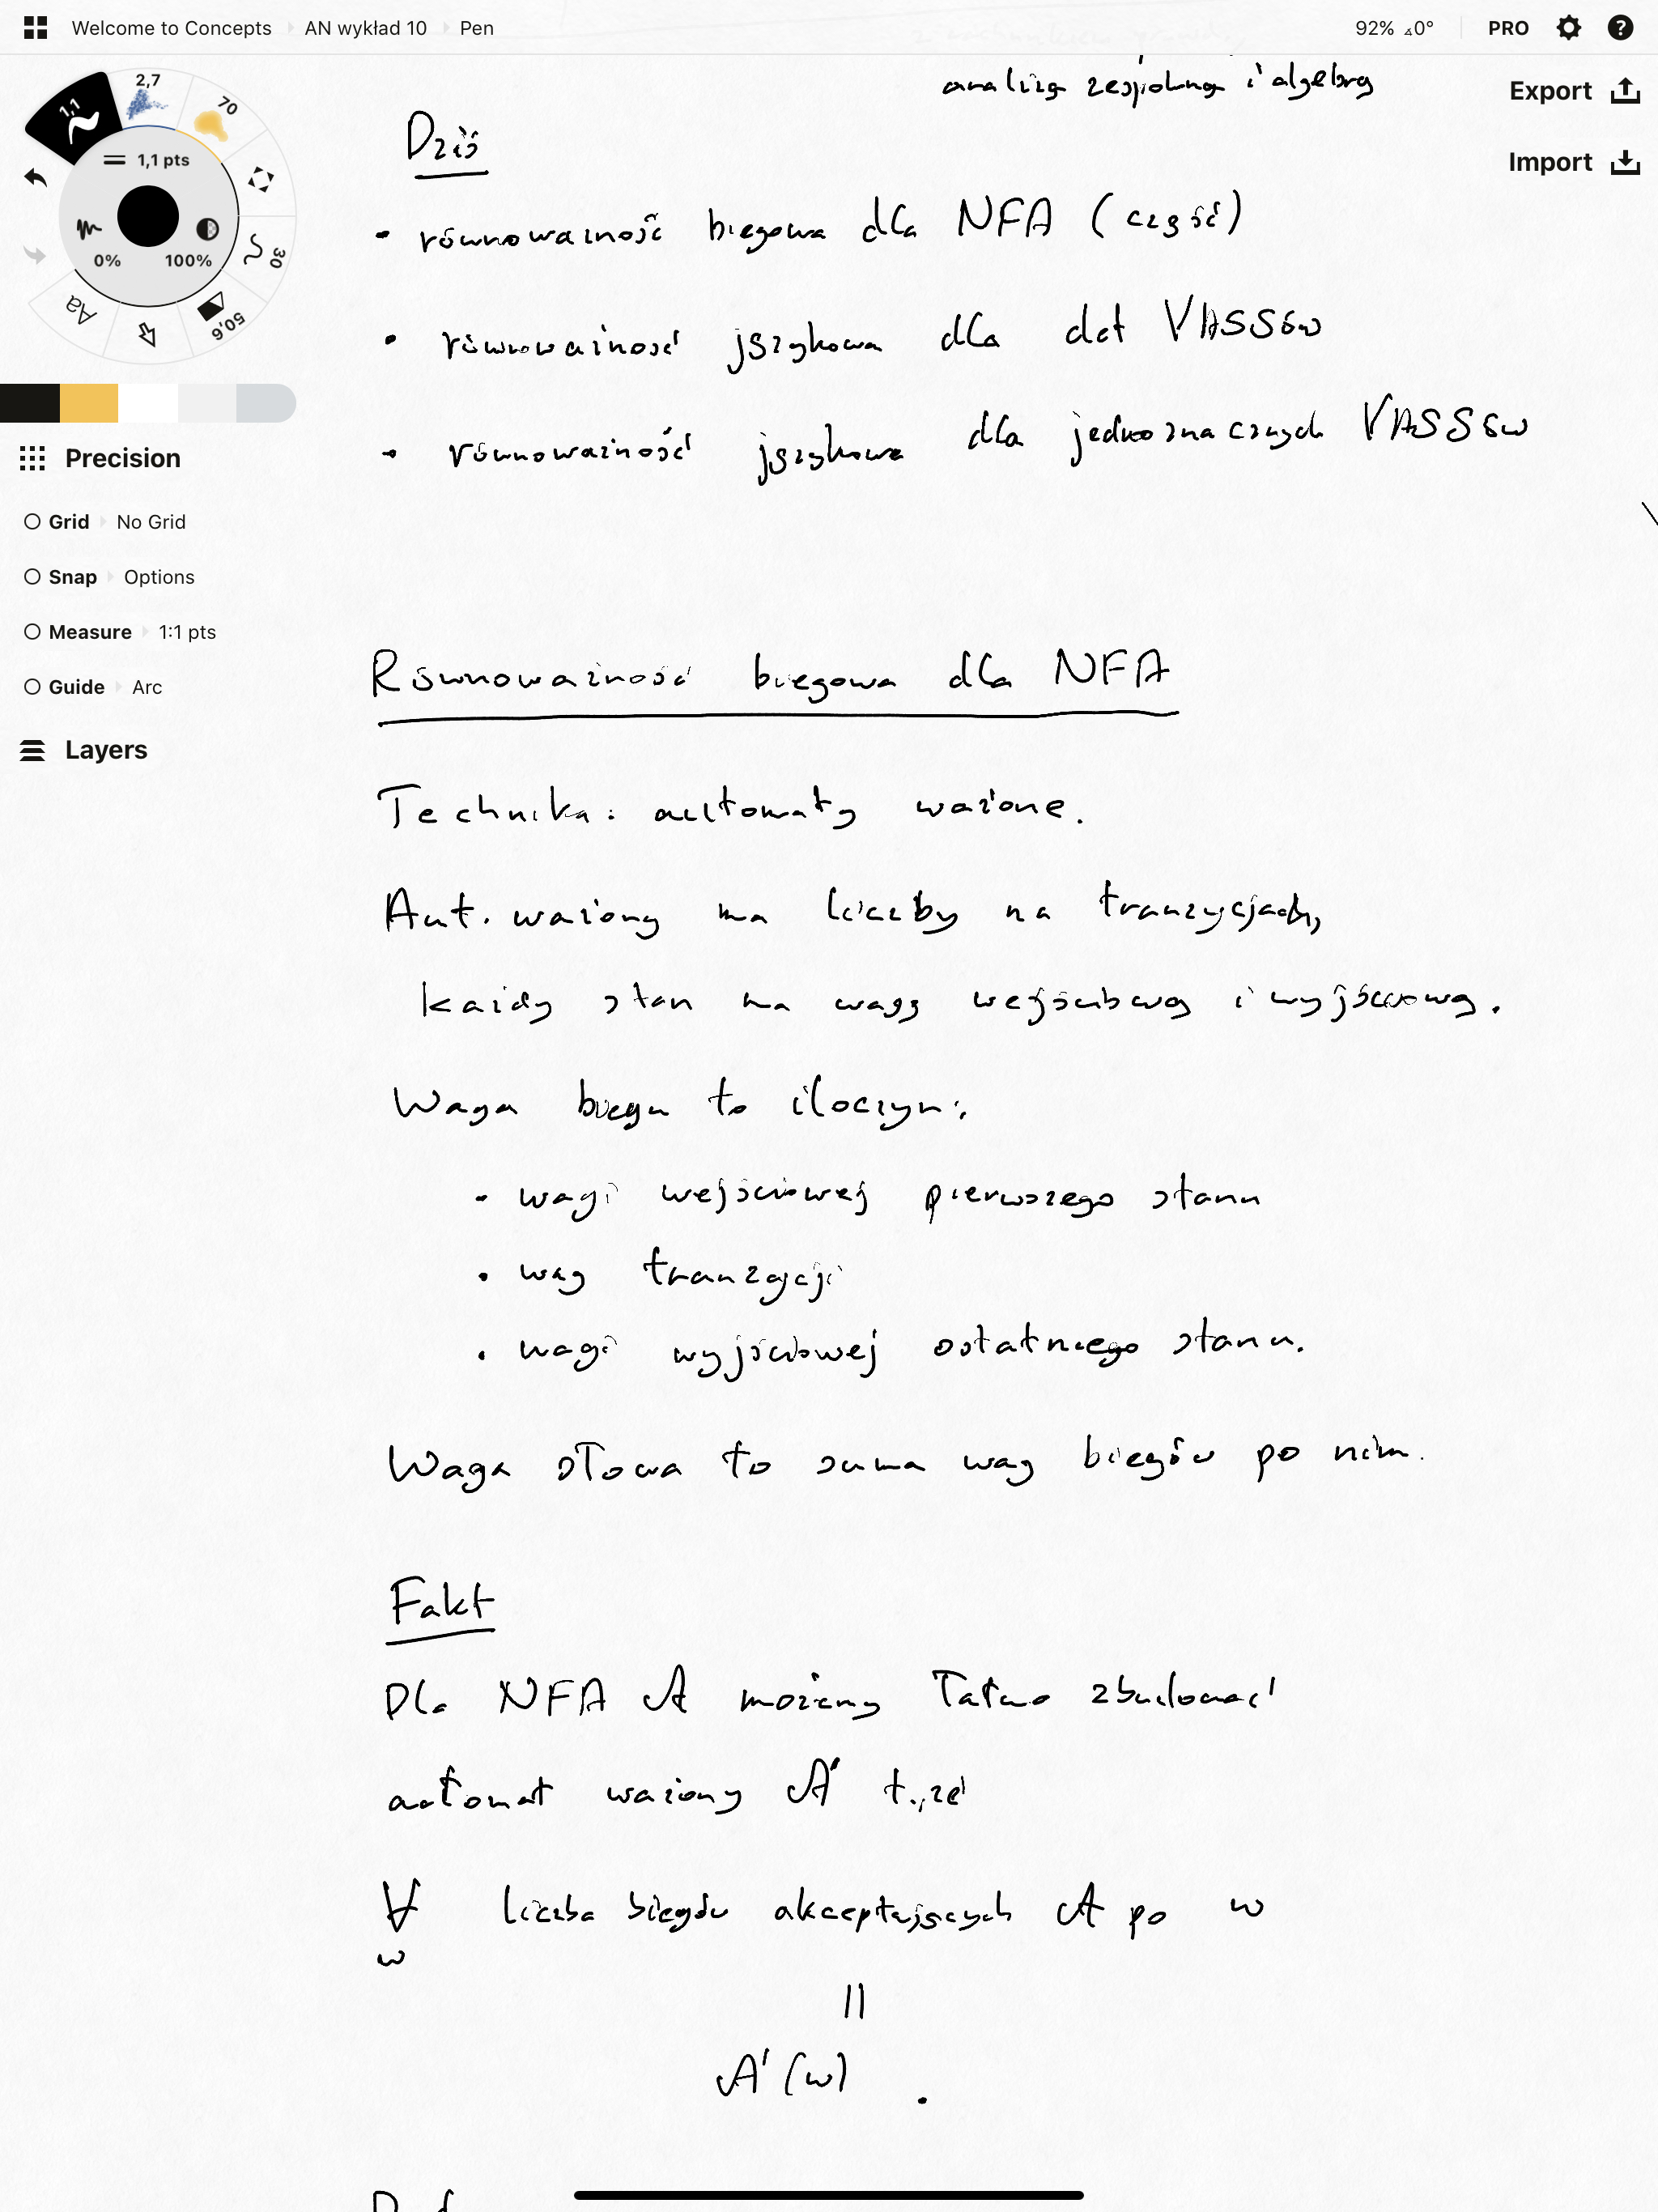 Welcome to Concepts AN wykład 10 Pen 92% 0° PRO
analizą zespoloną i algebrą
Export
Import
2,7
70
1,1
1,1 pts
0% 100%
30
50,6
Aa
Dziś
• równoważność biegowa dla NFA (część)
• równoważność językowa dla det VASSów
• równoważność językowa dla jednoznacznych VASSów
Precision
Grid No Grid
Snap Options
Measure 1:1 pts
Guide Arc
Layers
Równoważność biegowa dla NFA
Technika: automaty ważone.
Aut. ważony ma liczby na tranzycjach,
każdy stan ma wagę wejściową i wyjściową.
Waga biegu to iloczyn:
• wagi wejściowej pierwszego stanu
• wag tranzycji
• wagi wyjściowej ostatniego stanu.
Waga słowa to suma wag biegów po nim.
Fakt
Dla NFA A możemy łatwo zbudować
automat ważony A' t.,że
∀ liczba biegów akceptujących A po w
w
||
A'(w) .